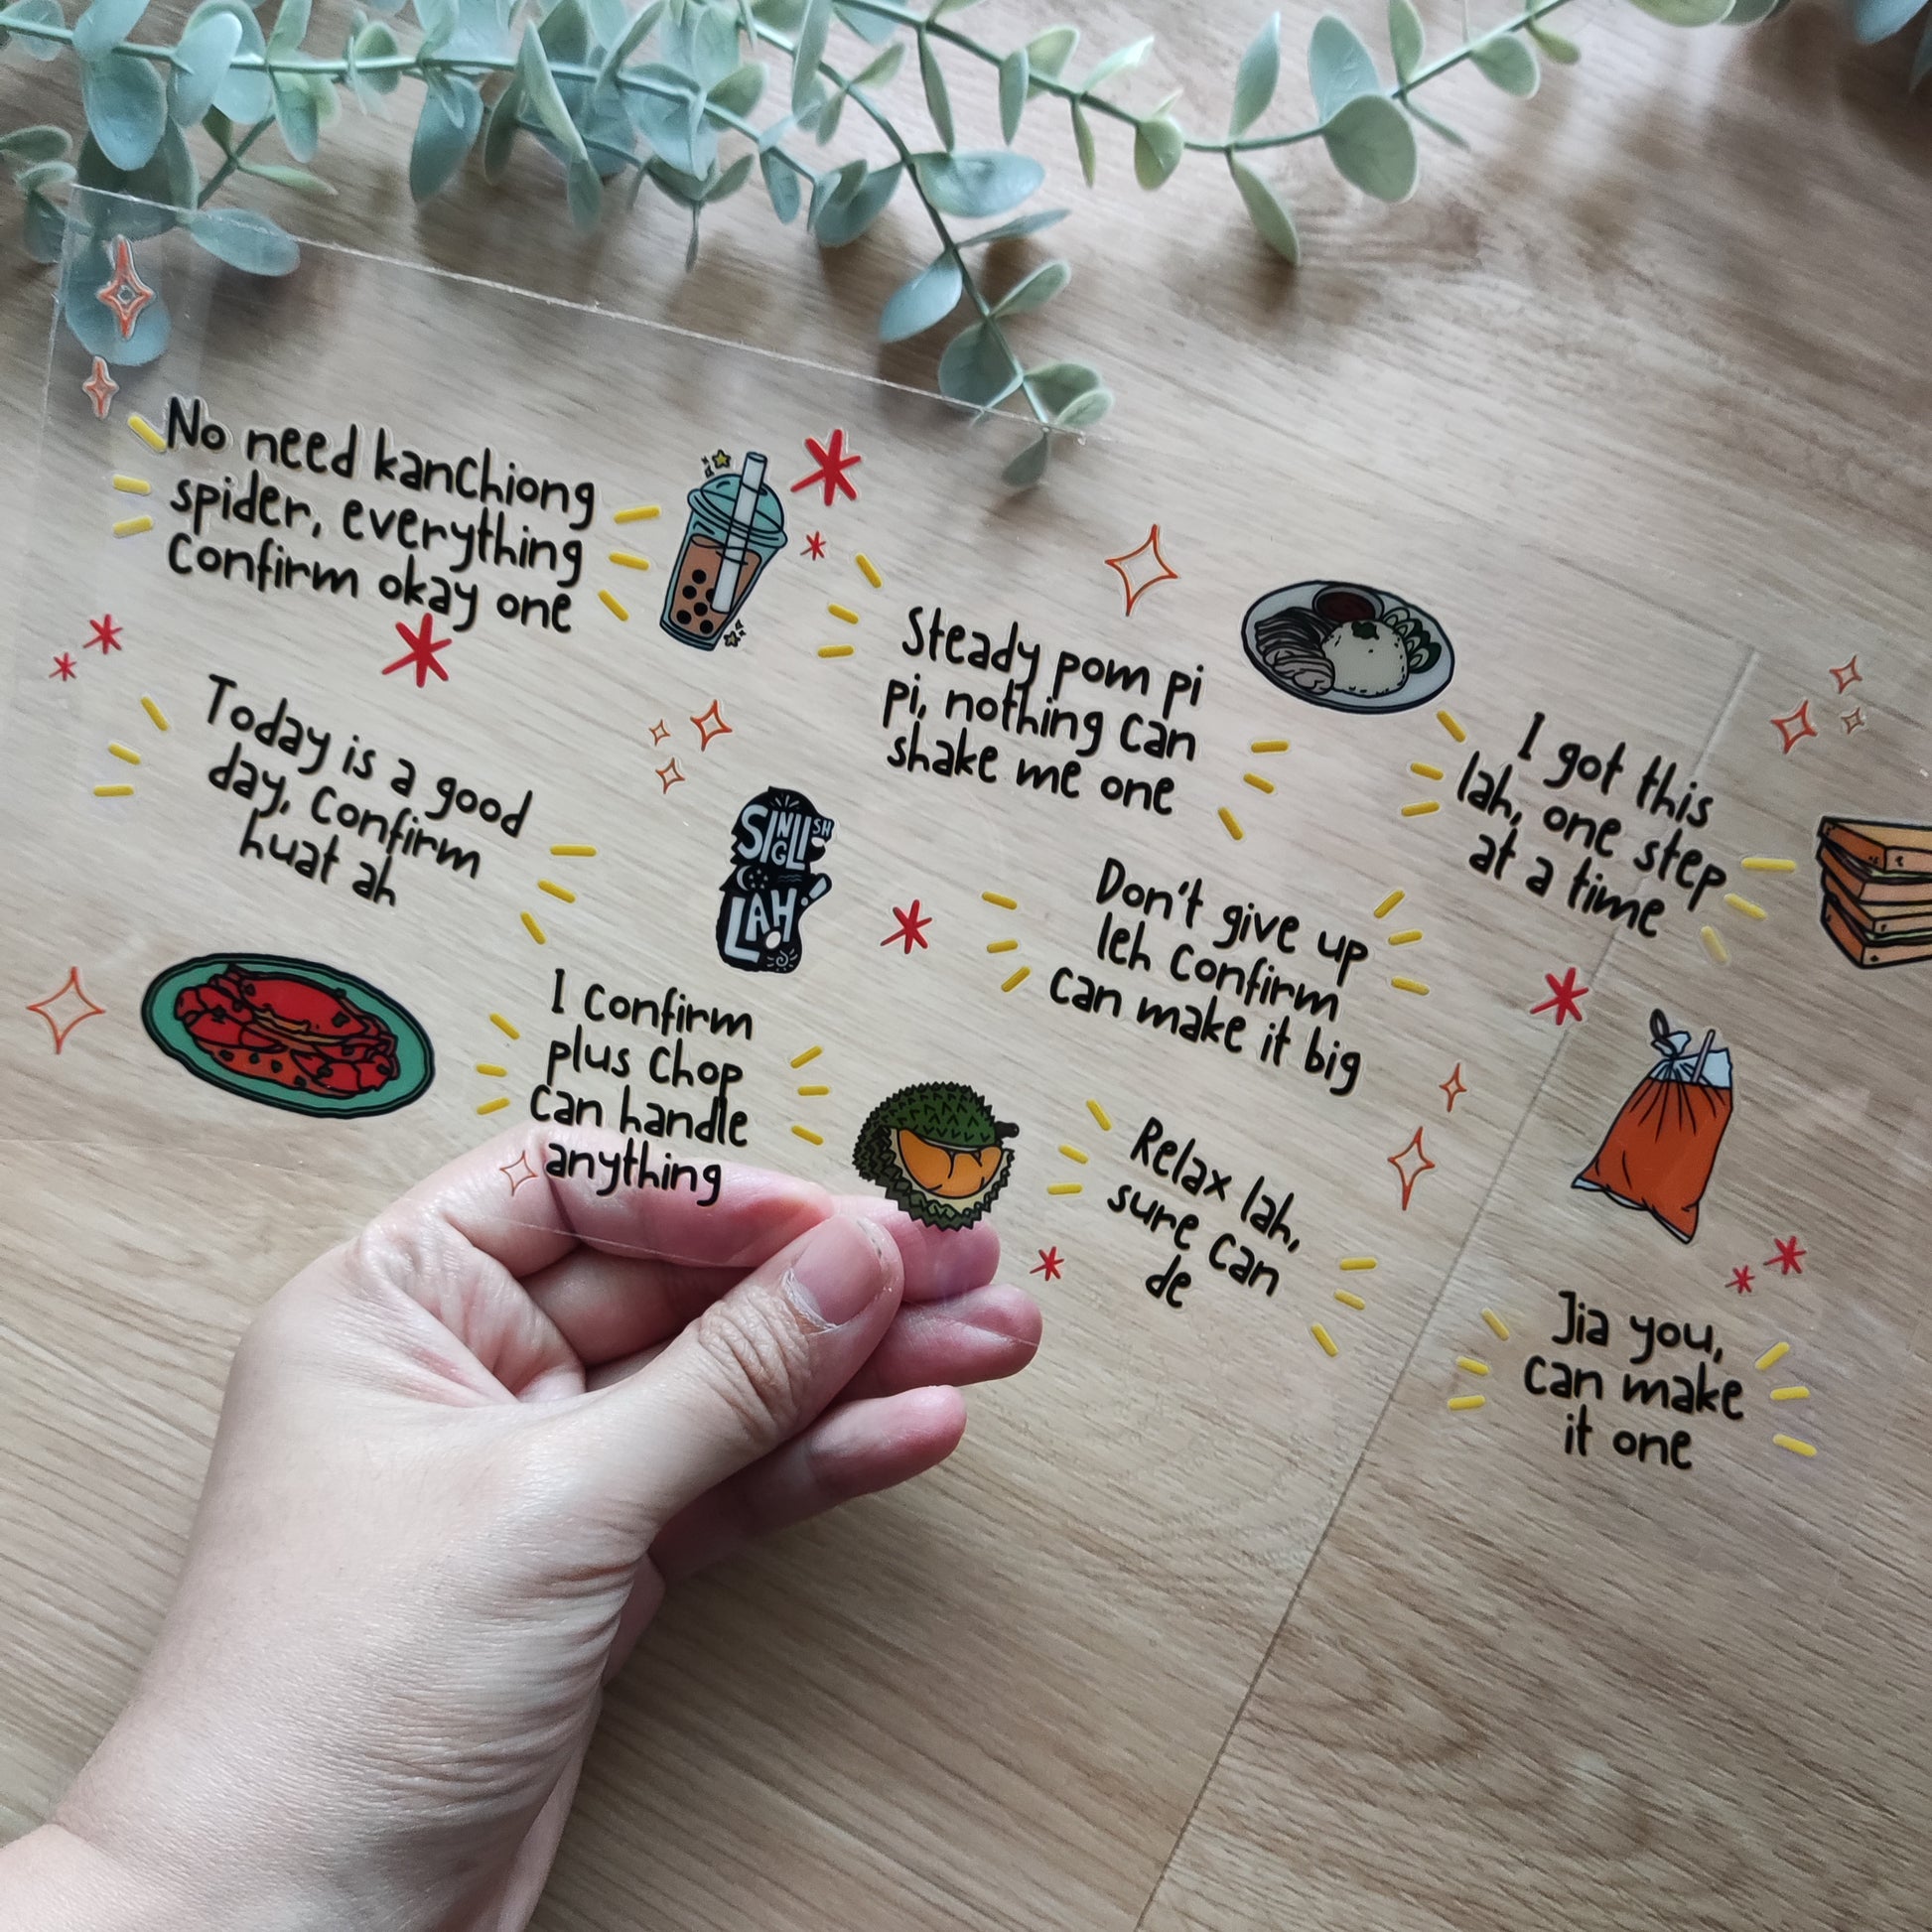 No need kanchiong
spider, everything
confirm okay one
Steady pom pi
pi, nothing can
shake me one
I got this
lah, one step
at a time
Today is a good
day, confirm
huat ah
SINGLISH
LAH!
Don't give up
leh confirm
can make it big
I confirm
plus chop
can handle
anything
Relax lah,
sure can
de
Jia you,
can make
it one